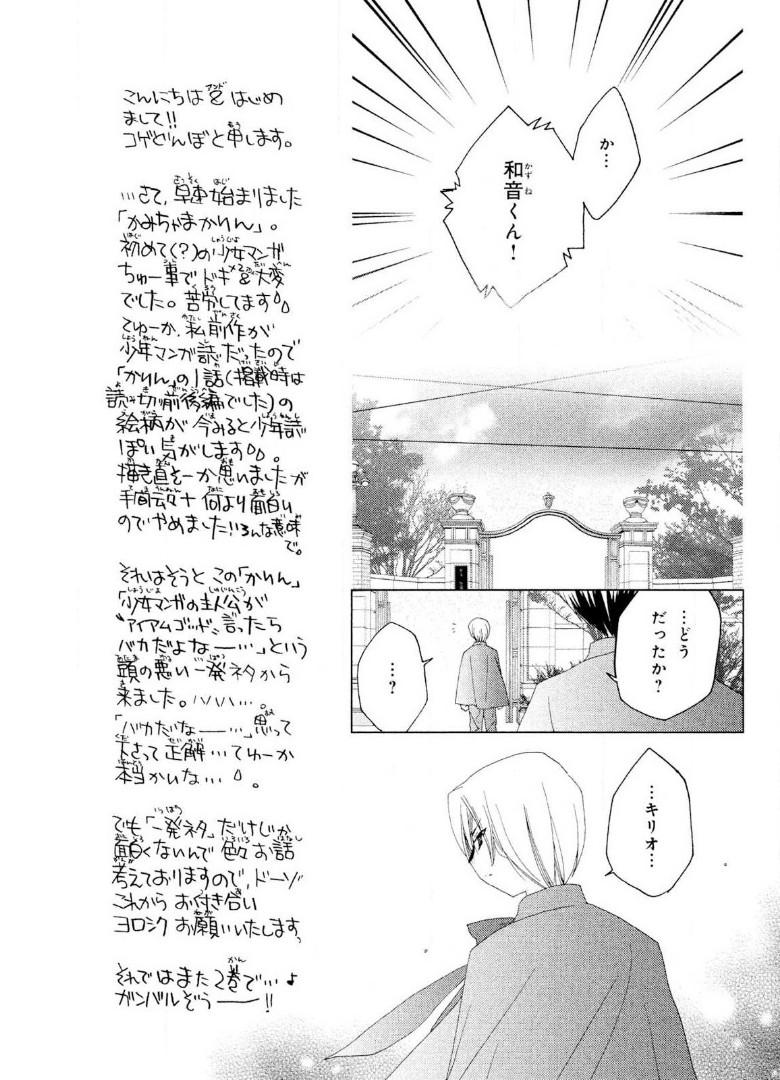 か…
和音くん！
かずね
…どう
だったか？
…？
…キリオ…
こんにちは&はじめ
アンド
まして!!
コゲどんぼと申します。
もう
…さて、早速始まりました
さっそくはじ
「かみちゃまかりん」。
初めて(?)の少女マンガ
はじ
しょうじょ
ちゅー事でドキ&大変
でした。苦労してます
てゆーか、私前作が
少年マンガ誌だったので
「かりん」の1話(掲載時は
読み切り前後編でした)の
絵柄が今みると少年誌
ぽい気がします。
描き直そーか思いましたが
手間云々+何より面白い
のでやめました!!いろんな意味
で。
それはそうとこの「かりん」
「少女マンガの主人公が
しょうじょ
しゅじんこう
"アイアムゴッド"言ったら
バカだよなー…」という
頭の悪い一発ネタから
来ました。ハハハ…。
「バカだなー…」思って
下さって正解…てゆーか
本当かいな…。
でも「一発ネタ」だけじゃ
いっぱつ
面白くないんで色々お話
考えておりますので、ドーゾ
これからお付き合い
ヨロシクお願いいたします。
それではまた2巻で…♪
かん
ガンバルぞうー!!